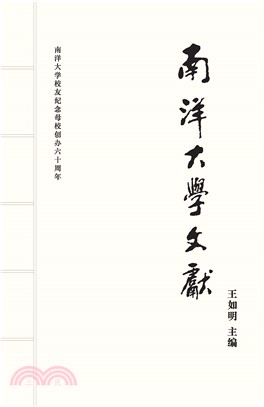 南洋大學文獻
王如明 主编
南洋大学校友纪念母校创办六十周年
三民